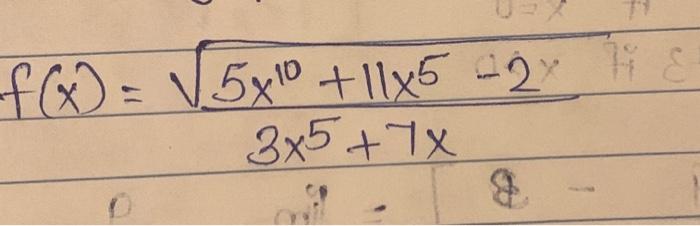 f(x) = √(5x¹⁰ + 11x⁵ - 2)
3x⁵ + 7x